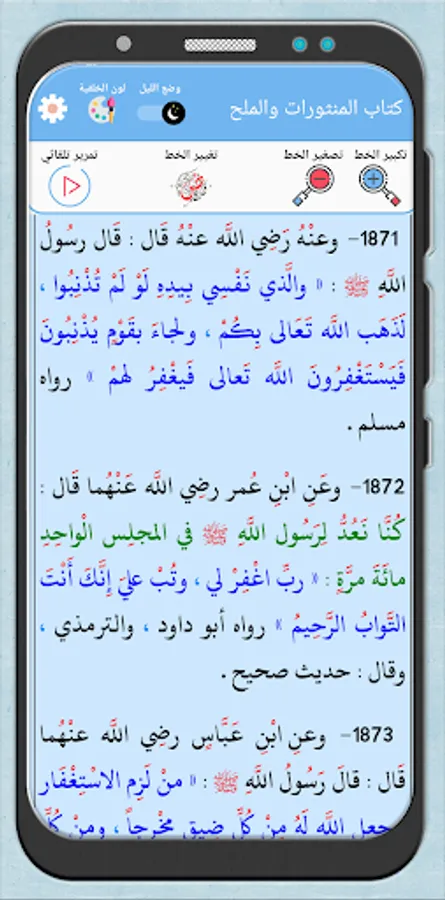 لون الخلفية وضع الليل
كتاب المنثورات والملح
تكبير الخط تصغير الخط تغيير الخط تمرير تلقائي
1871- وعنْهُ رَضِي اللَّه عنْهُ قَال : قَال رسُولُ
اللَّهِ ﷺ : « والَّذي نَفْسِي بِيدِهِ لَوْ لَمْ تُذْنِبُوا ،
لَذَهَب اللَّه تَعَالى بِكُمْ ، ولجاءَ بقَوْمٍ يُذْنِبُونَ
فَيَسْتَغْفِرُونَ اللَّه تعالى فَيغْفِرُ لهمْ » رواه
مسلم .
1872- وعَنِ ابْنِ عُمر رضِي اللَّه عَنْهُما قَال :
كُنَّا نَعُدُّ لِرَسُول اللَّهِ ﷺ في المجلِس الْواحِدِ
مائَةَ مرَّةٍ : « ربِّ اغْفِرْ لي ، وتُبْ عليَ إِنَّكَ أَنْتَ
التَّوابُ الرَّحِيمُ » رواه أبو داود ، والترمذي ،
وقال : حديث صحيح .
1873- وعنِ ابْنِ عَبَّاسٍ رضِي اللَّه عنْهُما
قَال : قالَ رَسُولُ اللَّهِ ﷺ : « منْ لَزِم الاسْتِغْفَار
جعل اللَّه لَهُ مِنْ كُلِّ ضِيقٍ مخْرجاً ، ومنْ كُلِّ